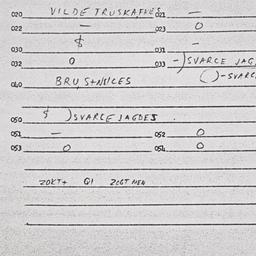 020 VILDE TRUSKAFKES 021 —
022 — 023 O
$
030 031 —
032 O 033 —)SVARCE JAG
()-SVARC
040 BRU,
050 $ )SVARCE JAGDES .
051 — 052 O
053 O 054 O
ZOKT+ QI ZOGT MEN